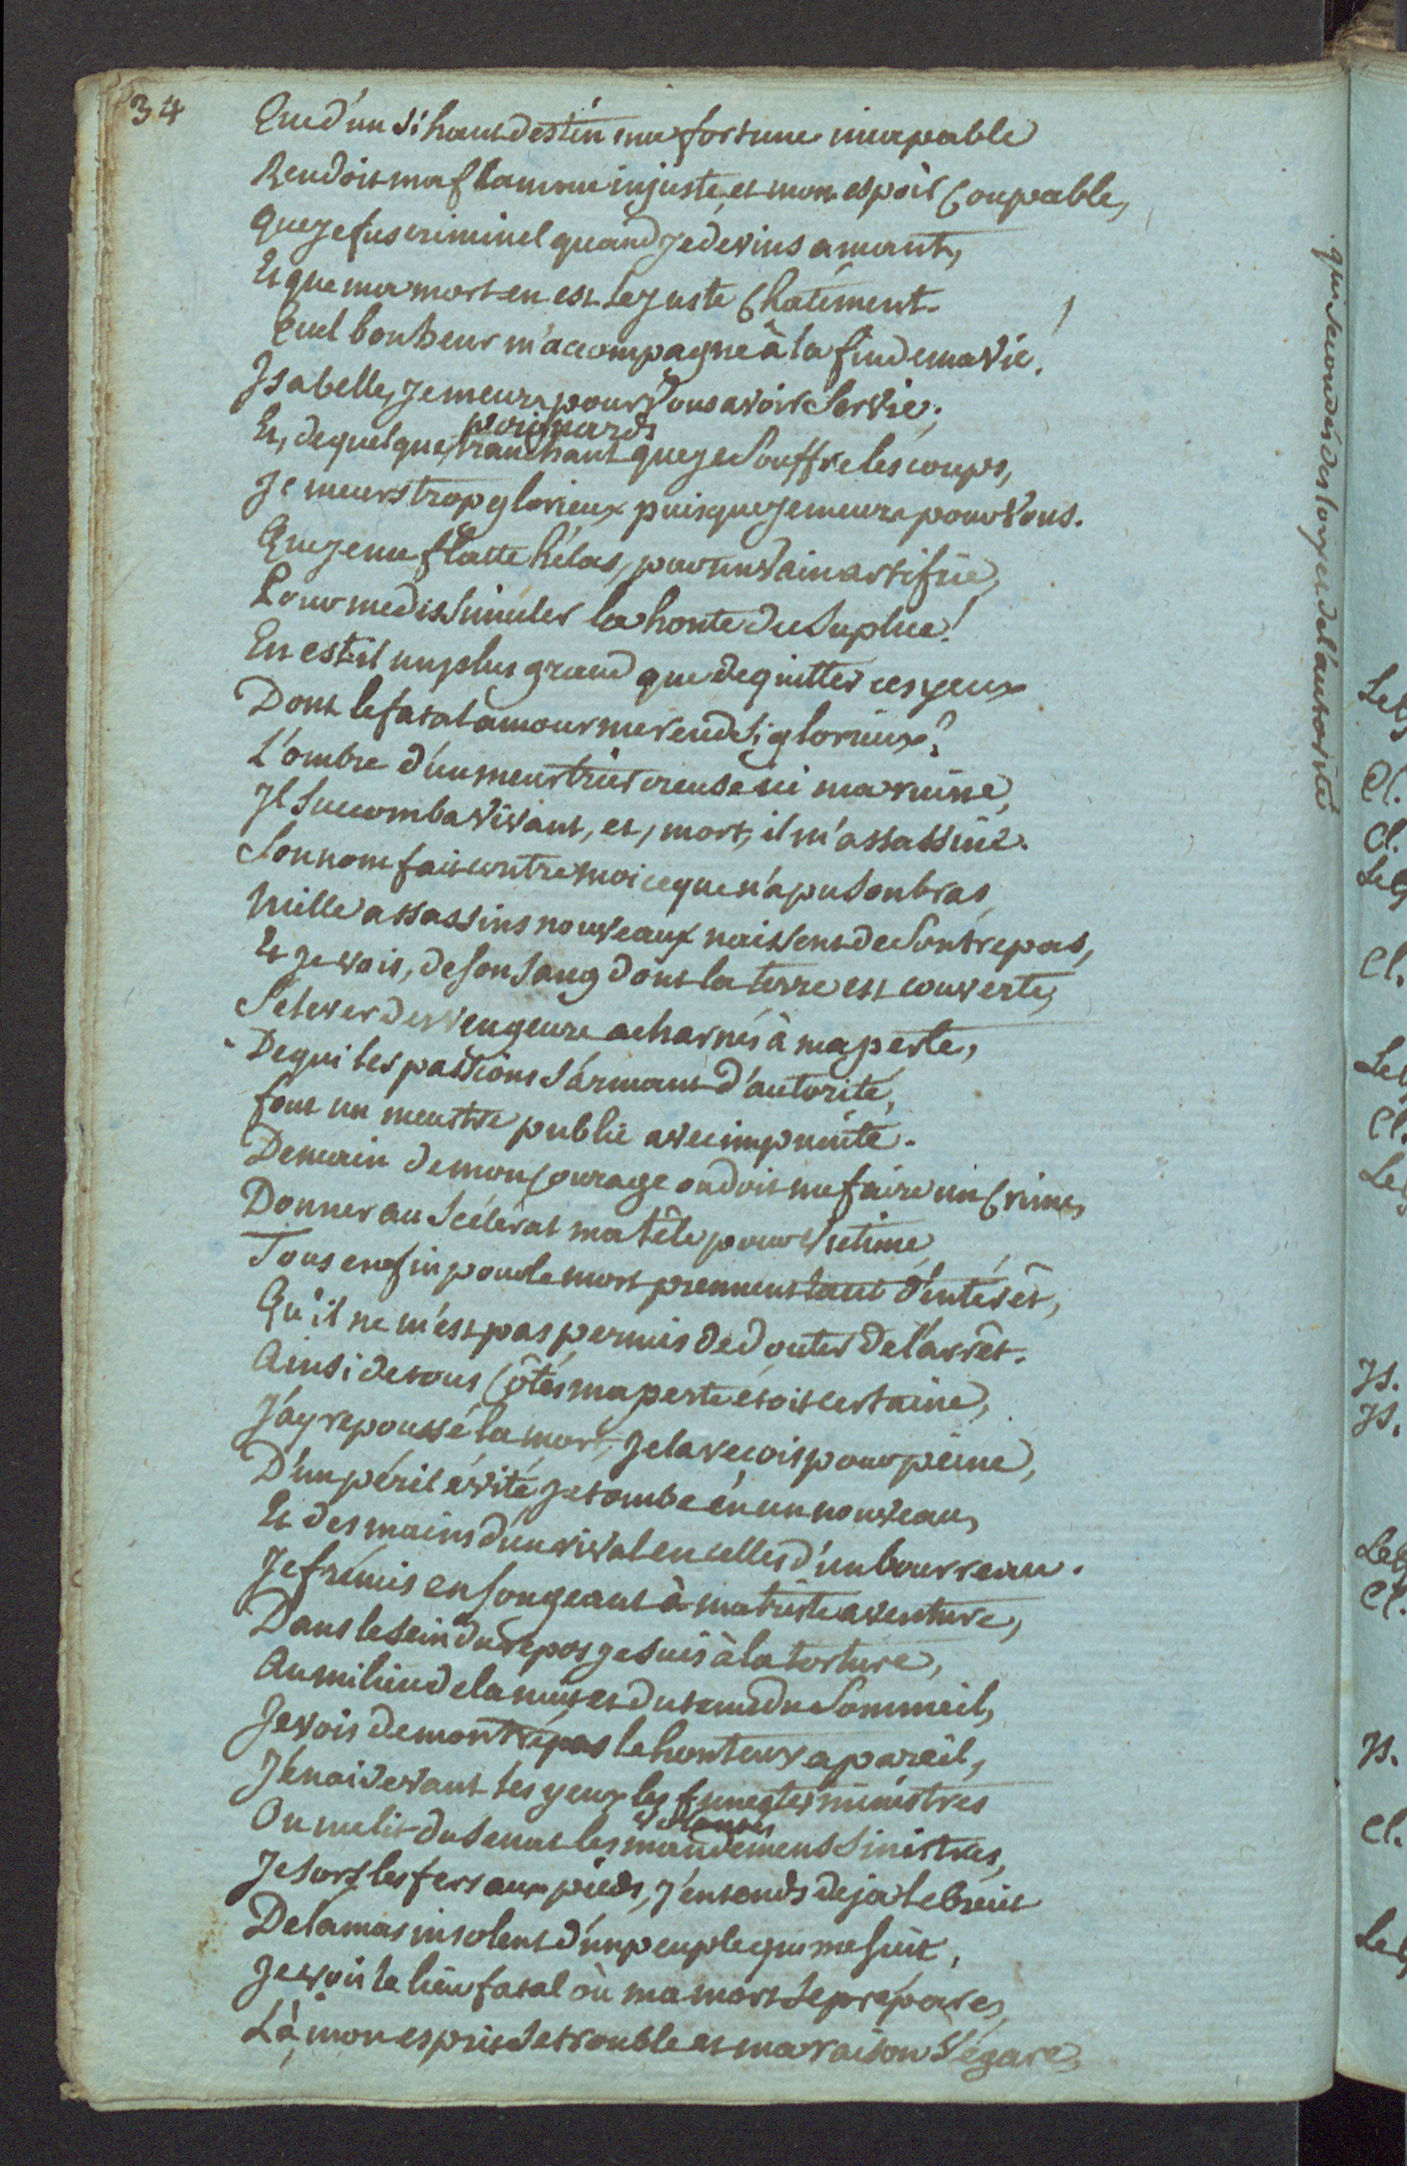 34
Que d'un si haut destin ma fortune incapable
Rendoit ma flamme injuste, et mon espoir Coupable,
que je fus criminel quand je devins amant,
Et que ma mort en est le juste Chatiment.
Quel bonheur m'accompagne à la fin de ma vie!
Isabelle, je meurs pour vous avoir servie;
poignards
Et, de quelque tranchant que je souffre les coups,
Je meurs trop glorieux puisque je meurs pour vous.
Que je me flatte hélas, par un vain artifice,
Pour me dissimuler la honte du suplice!
En est-il un plus grand que de quitter ces yeux
Dont le fatal amour me rend si glorieux?
L'ombre d'un meurtrier creuse ici ma ruine,
Il succomba vivant, et, mort, il m'assassine.
Son nom fait contre moi ce que n'a pu son bras,
Mille assassins nouveaux naissent de son trepas,
Et je vois, de son sang dont la terre est couverte,
S'elever des vengeurs acharnés à ma perte,
De qui les passions s'armant d'autorité,
font un meurtre public avec impunité.
Demain de mon Courage on doit me faire un Crime,
Donner au Scélérat ma tête pour victime,
Tous enfin pour le mort prennent tant d'intérêt,
Qu'il ne m'est pas permis de douter de l'arrêt.
Ainsi de tous Côtés ma perte étoit certaine,
J'ay repoussé la mort, je la reçois pour peine,
D'un péril évité je tombe en un nouveau,
Et des mains d'un rival en celles d'un bourreau.
Je frémis en songeant à ma triste aventure,
Dans le sein du repos je suis à la torture,
Au milieu de la nuit et du tems du Sommeil,
Je vois de mon trépas le honteux apareil,
J'en ai devant les yeux les funestes ministres
On me lit du Senat les mandemens sinistres,
Je sors les fers aux pieds, j'entends deja le bruit
De l'amas insolent d'un peuple qui me suit,
Je vois le lieu fatal où ma mort se prépare,
Là mon esprit se trouble et ma raison s'égare,
qui secondés des loix et de l'autorité
Cl.
Cl.
Cl.
Cl.
Is.
Is.
Cl.
Is.
Cl.